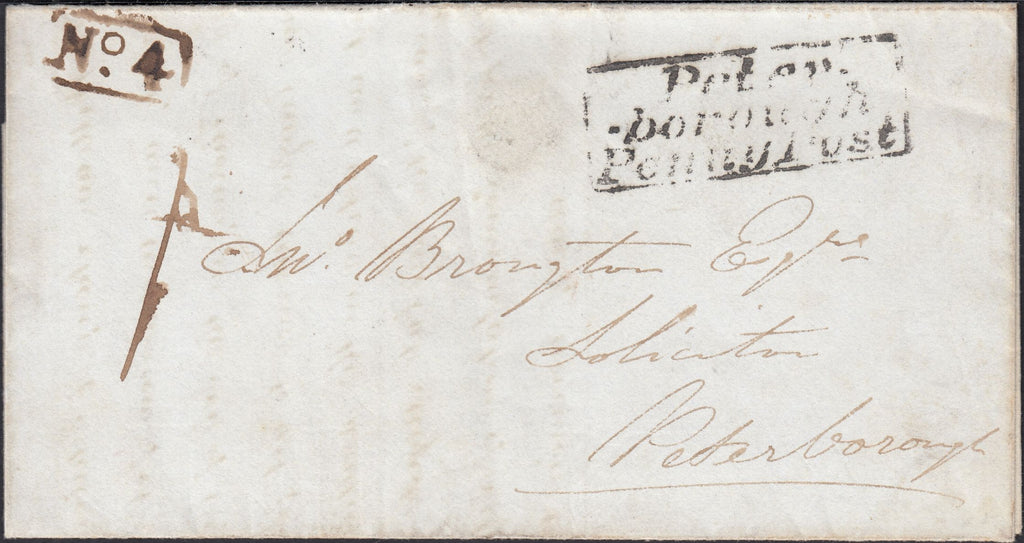 No. 4
Peter
-borough
Penny Post
1
Jno. Brongton Esqre
Soliciton
Peterborough